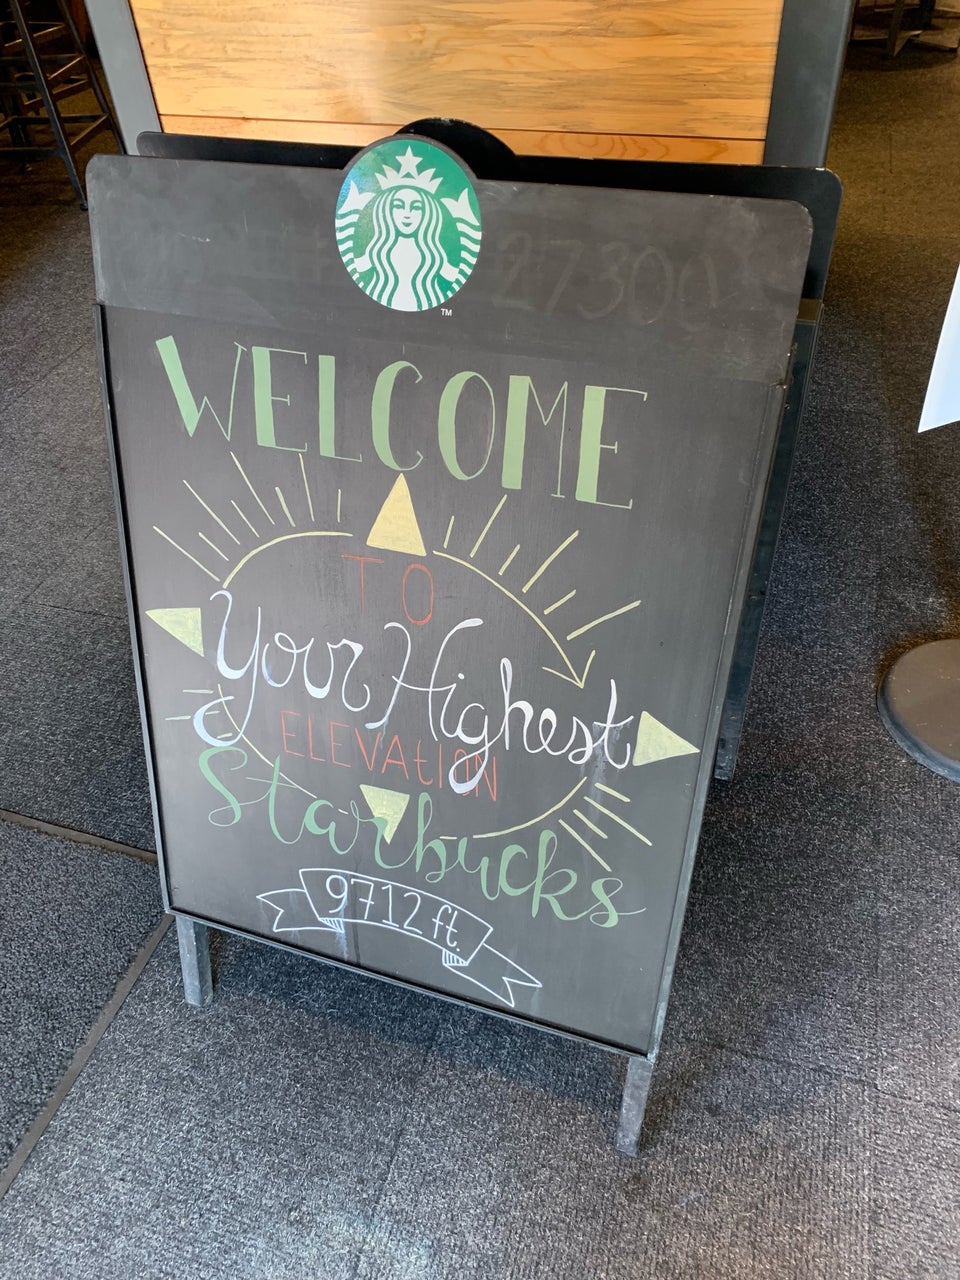 27300
WELCOME
TO
Your Highest
ELEVAtION
Starbucks
9712 ft.
TM